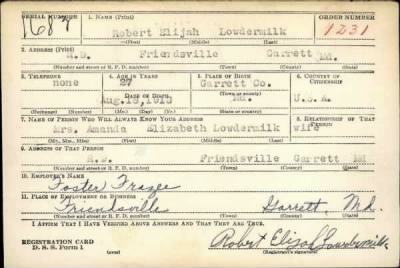 SERIAL NUMBER 1. NAME (Print) ORDER NUMBER
1687 Robert Elijah Lowdermilk 1231
(First) (Middle) (Last)
2. ADDRESS (Print)
R.D. Friendsville Garrett Md.
(Number and street or R. F. D. number) (Town) (County) (State)
3. TELEPHONE 4. AGE IN YEARS 5. PLACE OF BIRTH 6. COUNTRY OF CITIZENSHIP
none 27 Garrett Co.
DATE OF BIRTH (Town or county)
Aug. 18, 1913 Md. U.S.A.
(Exchange) (Number) (Mo.) (Day) (Yr.) (State or country)
7. NAME OF PERSON WHO WILL ALWAYS KNOW YOUR ADDRESS 8. RELATIONSHIP OF THAT PERSON
Mrs. Amanda Elizabeth Lowdermilk wife
(Mr., Mrs., Miss) (First) (Middle) (Last)
9. ADDRESS OF THAT PERSON
R.D. Friendsville Garrett Md
(Number and street or R. F. D. number) (Town) (County) (State)
10. EMPLOYER'S NAME
Foster Frazee
11. PLACE OF EMPLOYMENT OR BUSINESS
Friendsville Garrett, Md.
(Number and street or R. F. D. number) (Town) (County) (State)
I AFFIRM THAT I HAVE VERIFIED ABOVE ANSWERS AND THAT THEY ARE TRUE.
REGISTRATION CARD
D. S. S. Form 1 (over) Robert Elijah Lowdermilk
(Registrant's signature)